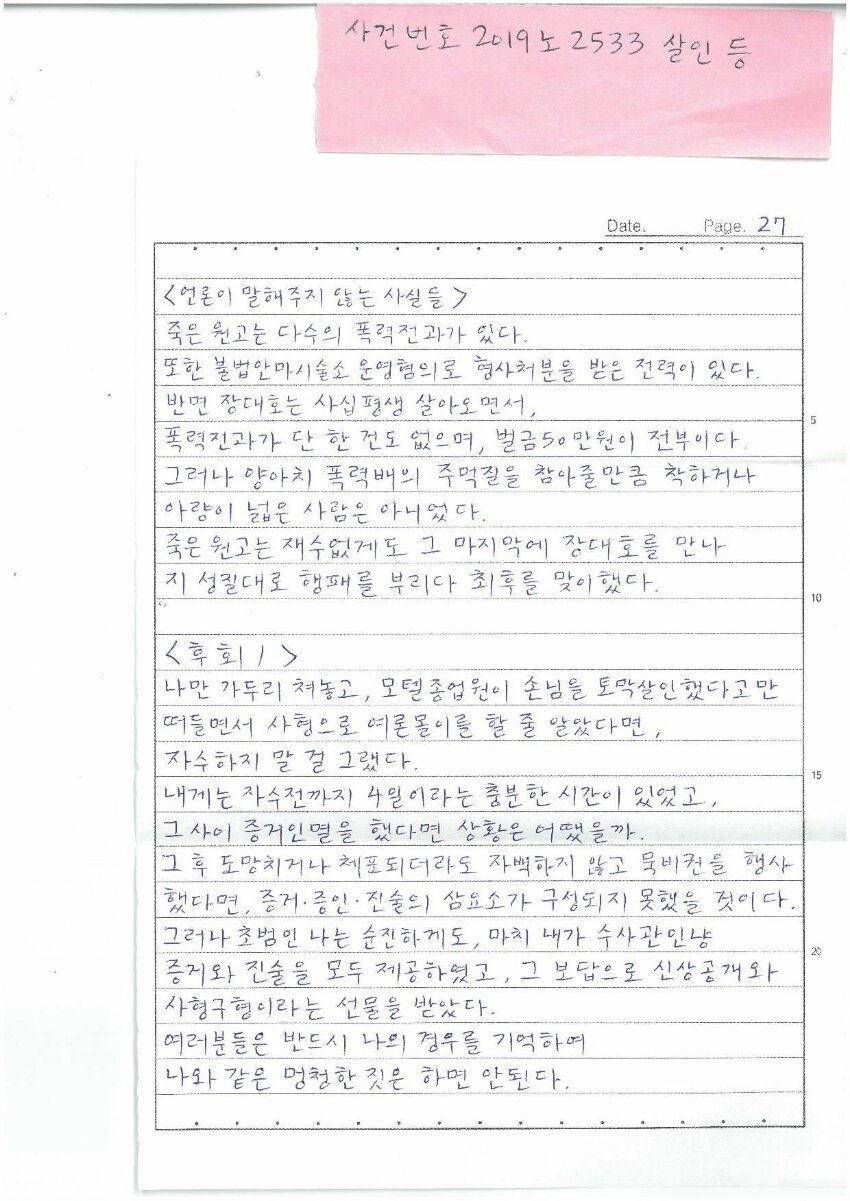 사건번호 2019노2533 살인 등
Date. Page. 27
<언론이 말해주지 않는 사실들>
죽은 원고는 다수의 폭력전과가 있다.
또한 불법안마시술소 운영혐의로 형사처분을 받은 전력이 있다.
반면 장대호는 사십평생 살아오면서,
5
폭력전과가 단 한 건도 없으며, 벌금50만원이 전부이다.
그러나 양아치 폭력배의 주먹질을 참아줄만큼 착하거나
아량이 넓은 사람은 아니었다.
죽은 원고는 재수없게도 그 마지막에 장대호를 만나
지 성질대로 행패를 부리다 최후를 맞이했다.
10
<후회 1>
나만 가두리 쳐놓고, 모텔종업원이 손님을 토막살인했다고만
떠들면서 사형으로 여론몰이를 할 줄 알았다면,
자수하지 말 걸 그랬다.
15
내게는 자수전까지 4일이라는 충분한 시간이 있었고,
그사이 증거인멸을 했다면 상황은 어땠을까.
그 후 도망치거나 체포되더라도 자백하지 않고 묵비권을 행사
했다면, 증거·증인·진술의 삼요소가 구성되지 못했을 것이다.
그러나 초범인 나는 순진하게도, 마치 내가 수사관인냥
20
증거와 진술을 모두 제공하였고, 그 보답으로 신상공개와
사형구형이라는 선물을 받았다.
여러분들은 반드시 나의 경우를 기억하여
나와 같은 멍청한 짓은 하면 안된다.